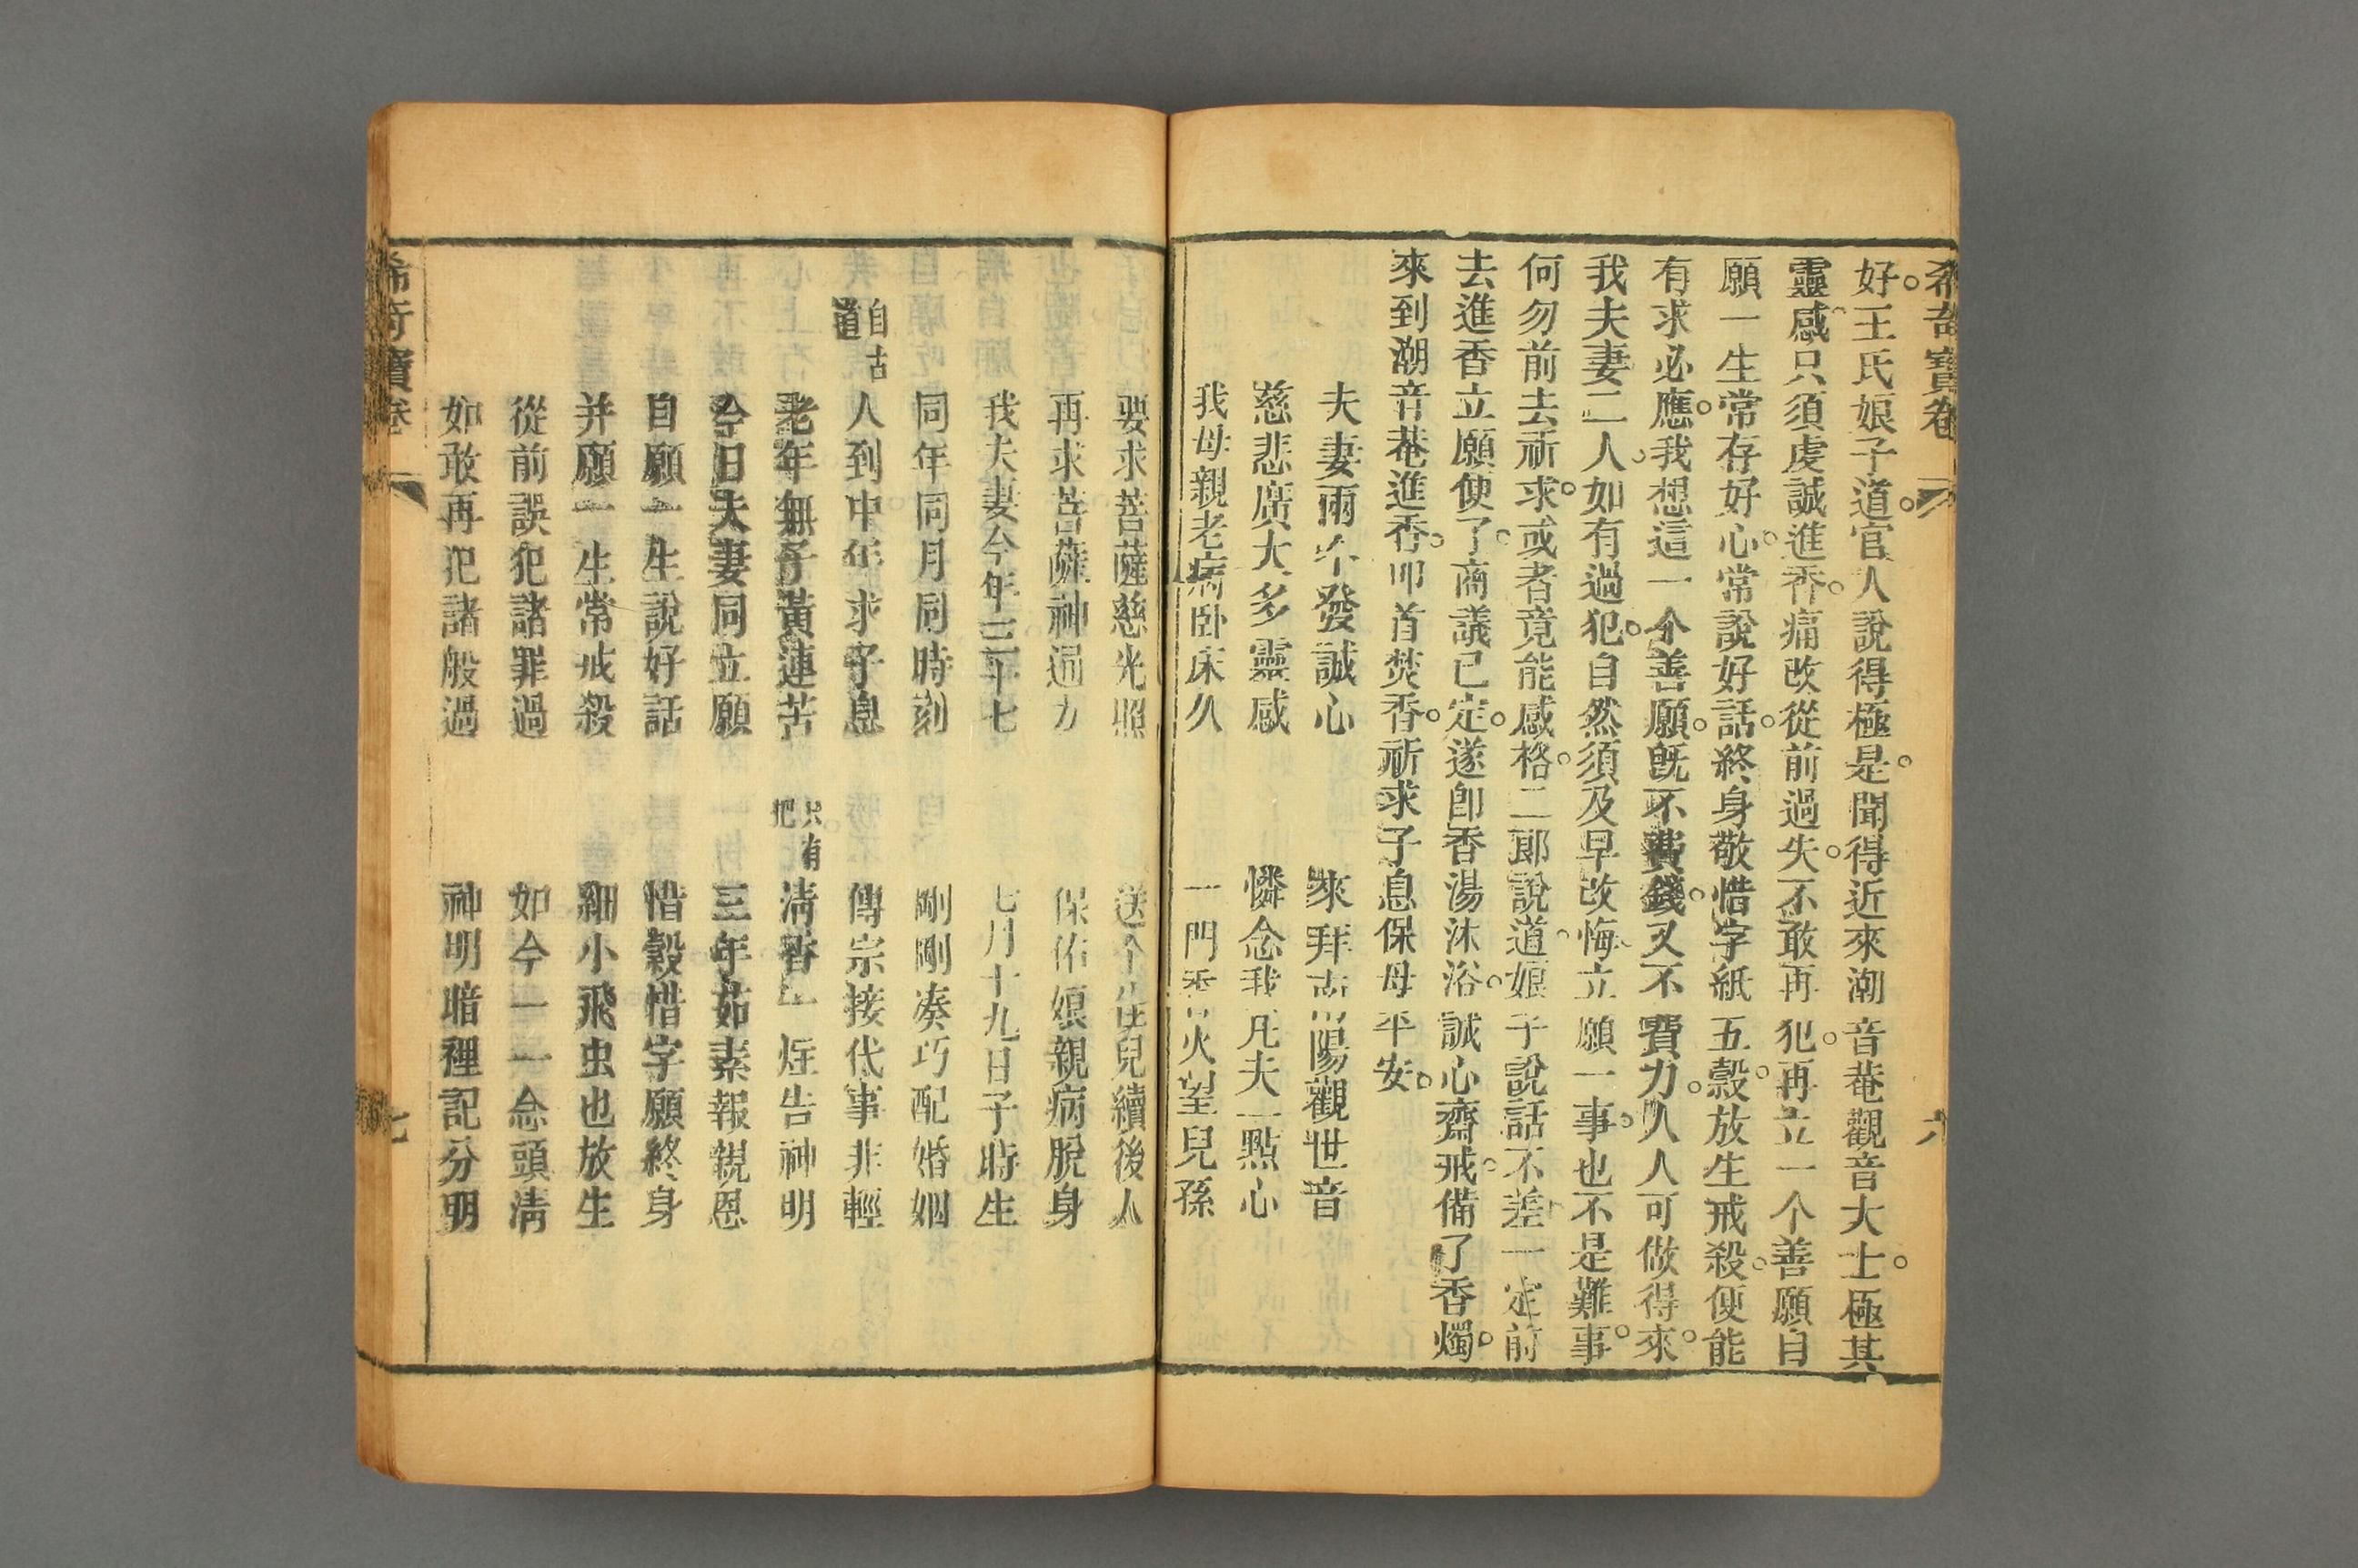 希奇寶卷
六
好。王氏娘子道。官人說得極是。聞得近來潮音菴觀音大士。極其
靈感只須虔誠進香。痛改從前過失。不敢再犯。再立一个善願自
願一生常存好心。常說好話。終身敬惜字紙五穀。放生戒殺。便能
有求必應。我想這一个善願。旣不費錢。又不費力。人人可做得來。
我夫妻二人如有過犯。自然須及早改悔立願一事。也不是難事。
何勿前去祈求。或者竟能感格。二郎說道。娘子說話不差一定前
去進香立願便了。商議已定。遂卽香湯沐浴。誠心齋戒。備了香燭。
來到潮音菴進香。叩首焚香。祈求子息保母平安。
夫妻兩个發誠心　來拜南陽觀世音
慈悲廣大多靈感　憐念我凡夫一點心
我母親老病卧床久　一門香火望兒孫
要求菩薩慈光照　送个佳兒續後人
再求菩薩神通力　保佑娘親病脫身
我夫妻今年三年七　七月十九日子時生
同年同月同時刻　剛剛凑巧配婚姻
自古道人到中年求子息　傳宗接代事非輕
老年無子黃連苦　只有把清香一炷告神明
今日夫妻同立願　三年茹素報親恩
自願一生說好話　惜穀惜字願終身
并願一生常戒殺　細小飛虫也放生
從前誤犯諸罪過　如今一一念頭清
如敢再犯諸般過　神明暗裡記分明
希奇寶卷
七